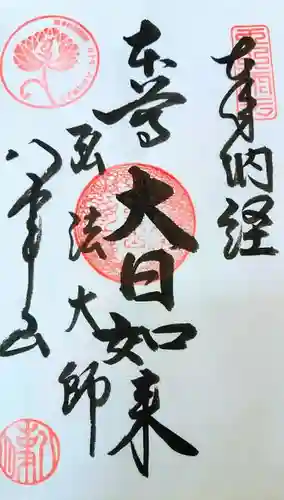 奉納経
本尊 大日如来
弘法大師
八事山